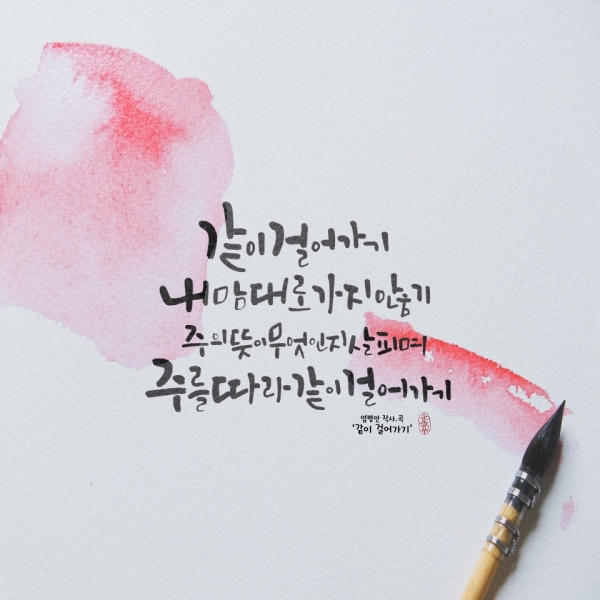 같이 걸어가기
내 맘대로 가지 않기
주의 뜻이 무엇인지 살피며
주를 따라 같이 걸어가기
염평안 작사.곡
'같이 걸어가기'